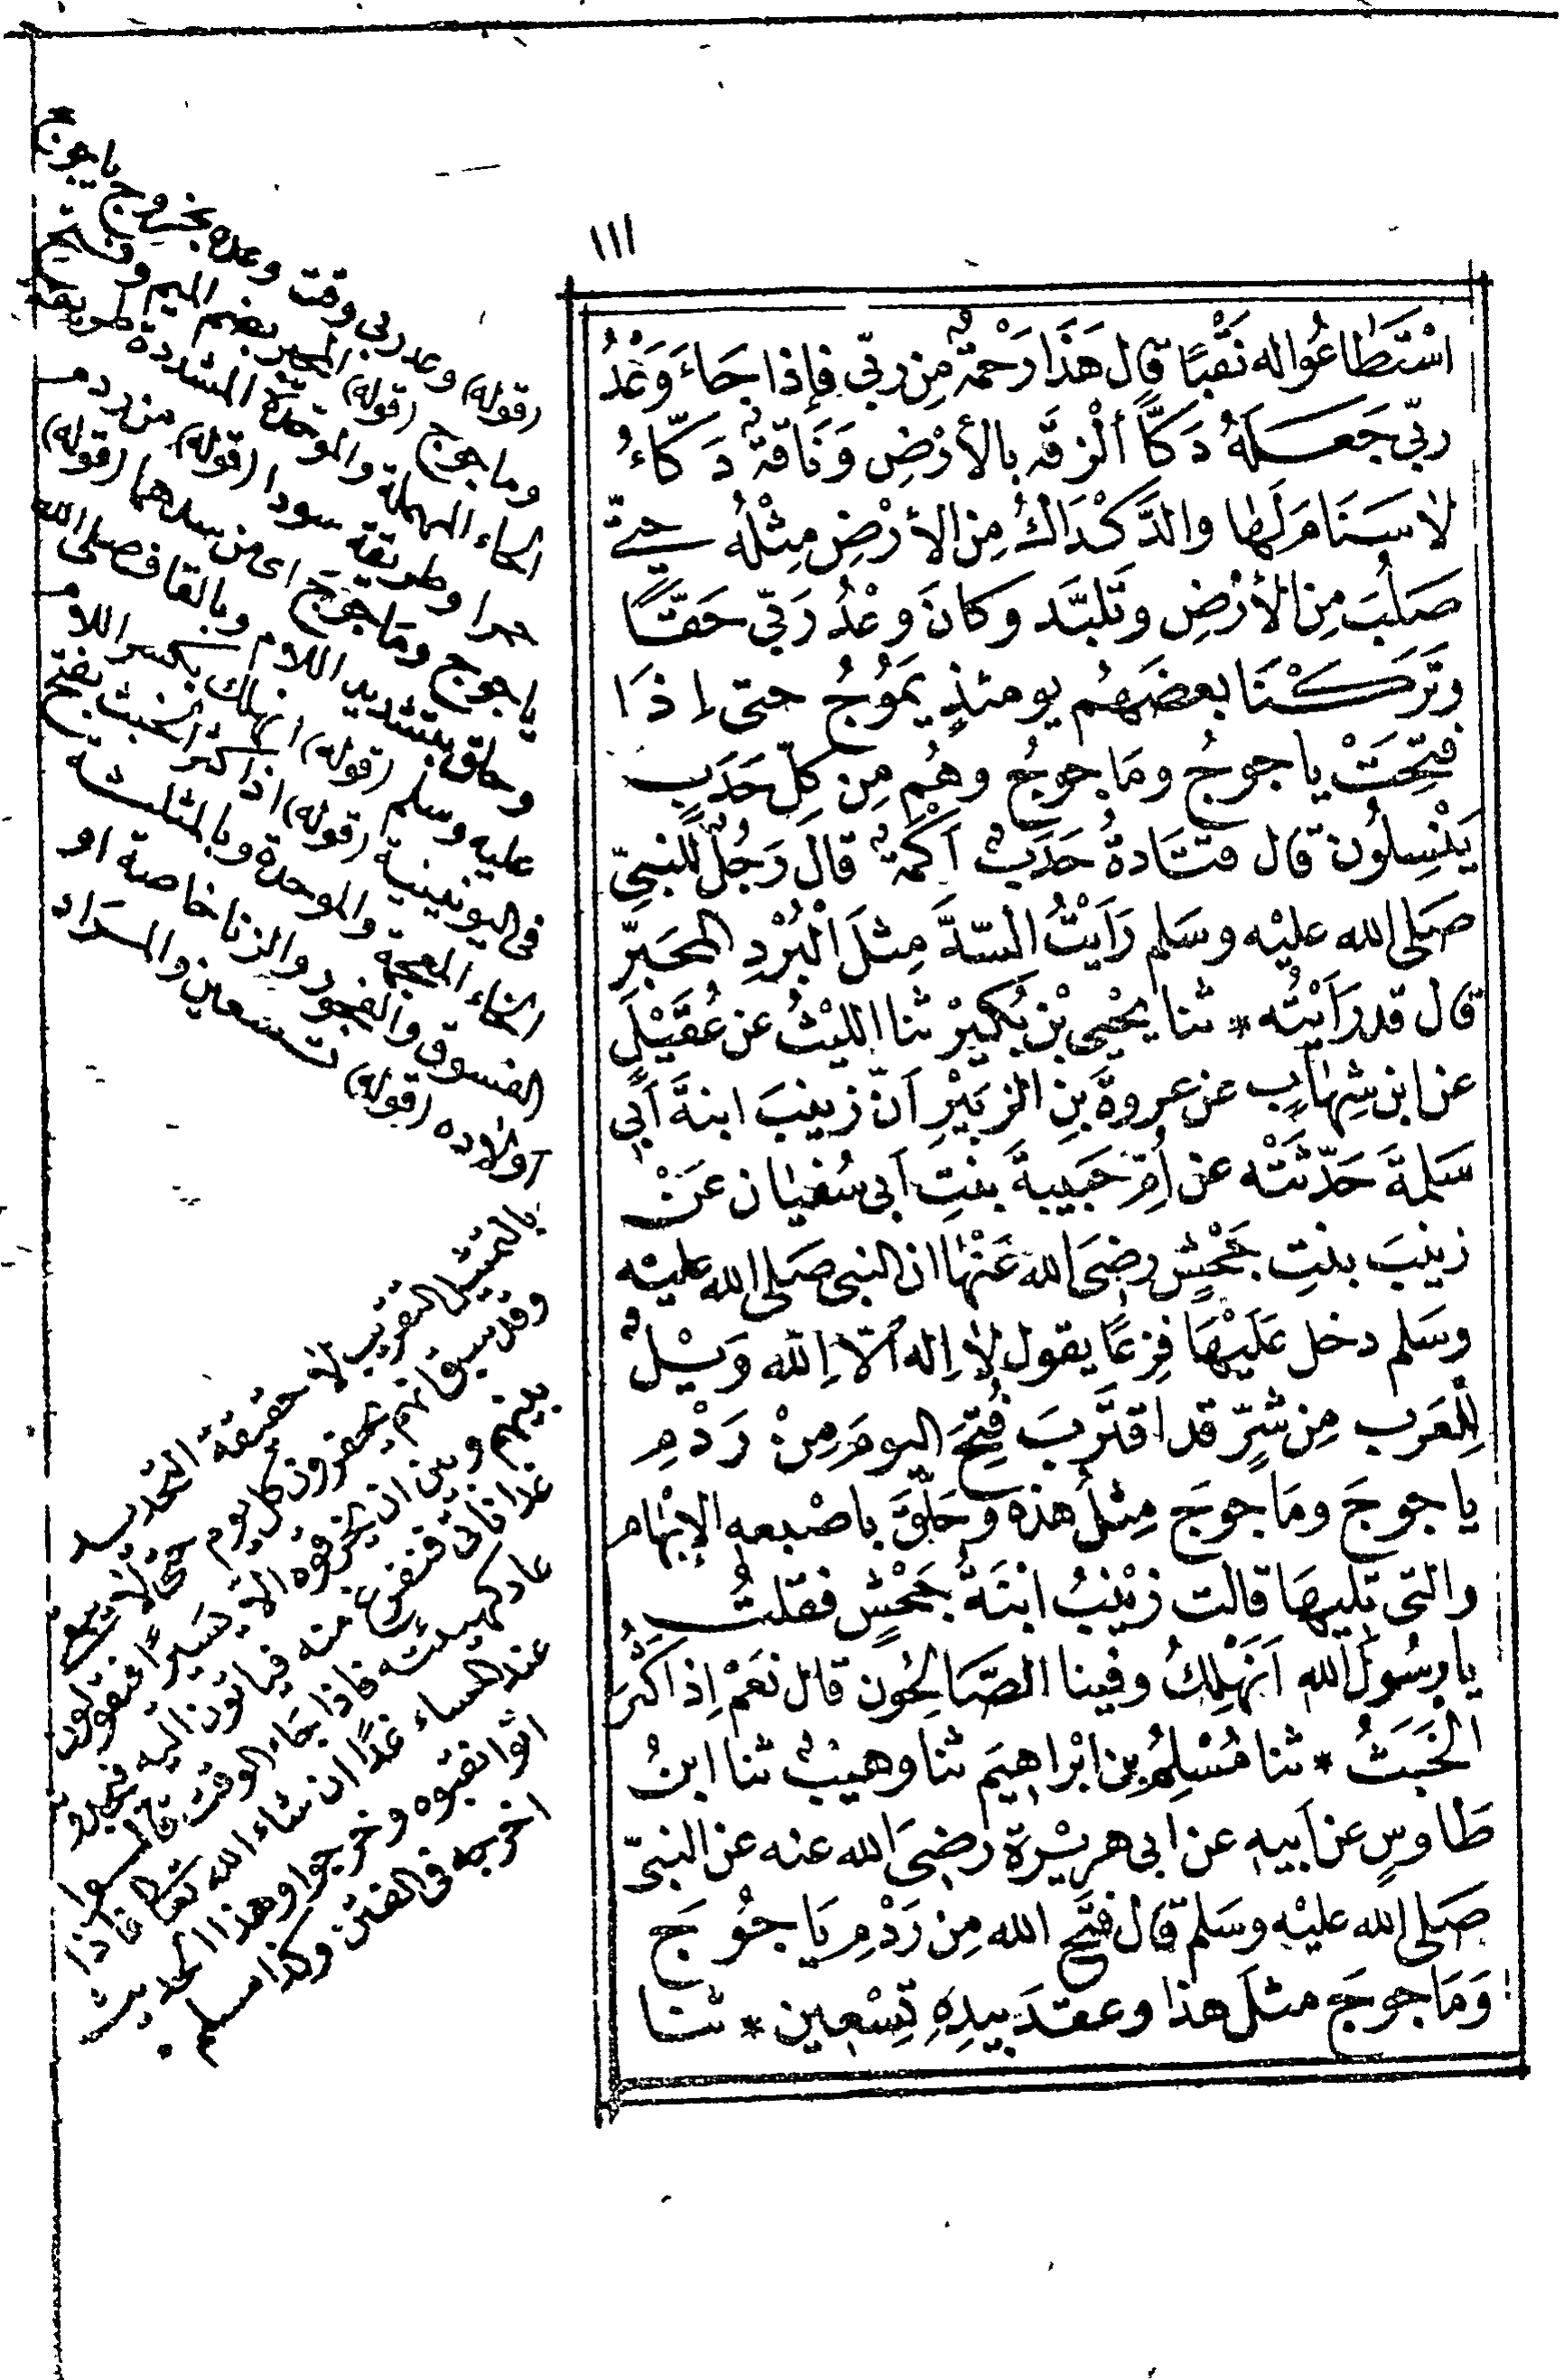 ١١١
اسْتَطَاعُوا له نَقْبًا قال هَذَا رَحْمَةٌ مِن ربّي فإذا جَاءَ وَعْدُ
ربّي جَعَلَهُ دَكًّا ألْزقَه بالأرْضِ وَنَاقَةٌ دَكّاءُ
لا سَنَامَ لَها والدَّكْدَاكُ مِن الأرْضِ مِثْلُه حتّى
صَلُبَ مِن الأرْضِ وتَلبَّد وكانَ وعْدُ رَبّي حَقًّا
وتَرَكْنَا بعضَهُم يومئذٍ يَمُوجُ حتى إذَا
فتِحَتْ ياجوجُ ومَاجوجُ وهُم مِن كلِّ حَدَبٍ
يَنْسِلُون قال قتَادةُ حَدَبٌ أكَمَةٌ قال رَجُلٌ للنبيّ
صَلى الله عليْه وسَلم رَأيْتُ السّدَّ مِثلَ الْبُرْدِ المحَبَّرِ
قال قد رَأيْتَه * ثنا يَحْيى بْن بُكَيْرٍ ثنا الليْثُ عن عُقَيْلٍ
عن ابن شِهابٍ عن عروةَ بنِ الزبَيْرِ أنّ زينبَ ابنةَ أبي
سَلمةَ حَدّثَتْه عن أمِّ حَبيبةَ بنتِ أبي سُفيَان عَنْ
زينبَ بنتِ جَحْشٍ رضِيَ الله عَنْها ان النبى صَلى الله عليْه
وسَلم دخل عَلَيْهَا فزعًا يقول لا إله ألّا إلله وَيْلٌ
للعَرب مِن شرٍّ قد اقتَربَ فُتِحَ اليومَ مِنْ رَدْمِ
ياجوجَ ومَاجوجَ مِثلُ هذه وحَلّقَ باصْبعهِ الإبْهام
والتى تَلِيهَا قالت زيْنبُ ابْنَةُ جَحْشٍ فقلتُ
يا رسُولَ الله أنَهْلِكُ وفينا الصَّالحُون قال نعَمْ إذا كَثُرَ
الخَبَثُ * ثنا مُسْلِمُ بن ابْراهيمَ ثنا وهيبٌ ثنا ابنُ
طَاوسٍ عن أبيه عن ابى هريْرة رضِيَ الله عنه عن النبيّ
صَلى الله عليْه وسَلم قال فتَح الله مِن رَدْمِ يَاجُوجَ
وَمَاجوجَ مثلَ هذا وعقدَ بيدِهِ تِسْعين * ثنا
(قوله) وعد ربى وقت وعده بخروج ياجوج
وماجوج (قوله) المحبر بضم الميم وفتح
الحاء المهملة والموحدة المشددة طريقة
حمرا وطريقة سودا (قوله) من ردم
ياجوج وماجوج اى من سدهما (قوله)
وحلق بتشديد اللام وبالقاف صلى الله
عليه وسلم (قوله) انهلك بكسر اللام
فى اليونينية (قوله) اذا كثر الخبث بفتح
الخاء المعجمة والموحدة وبالمثلثة
الفسوق والفجور والزنا خاصة او
أولاده (قوله) تسعين والمراد
بالتمثيل التقريب لا حقيقة التحديد
وقد سبق انهم يحفرون كل يوم حتى لا يبقى
بينهم وبين ان يخرقوه الا يسيرا فيقولون
غدا نأتى فنفرغ منه فيأتون اليه فيجدونه
عاد كهيئته فاذا جاء الوقت قالوا
عند المساء غدًا ان شاء الله تعالى فاذا
اتوا نقبوه وخرجوا وهذا الحديث
اخرجه فى الفتن وكذا مسلم